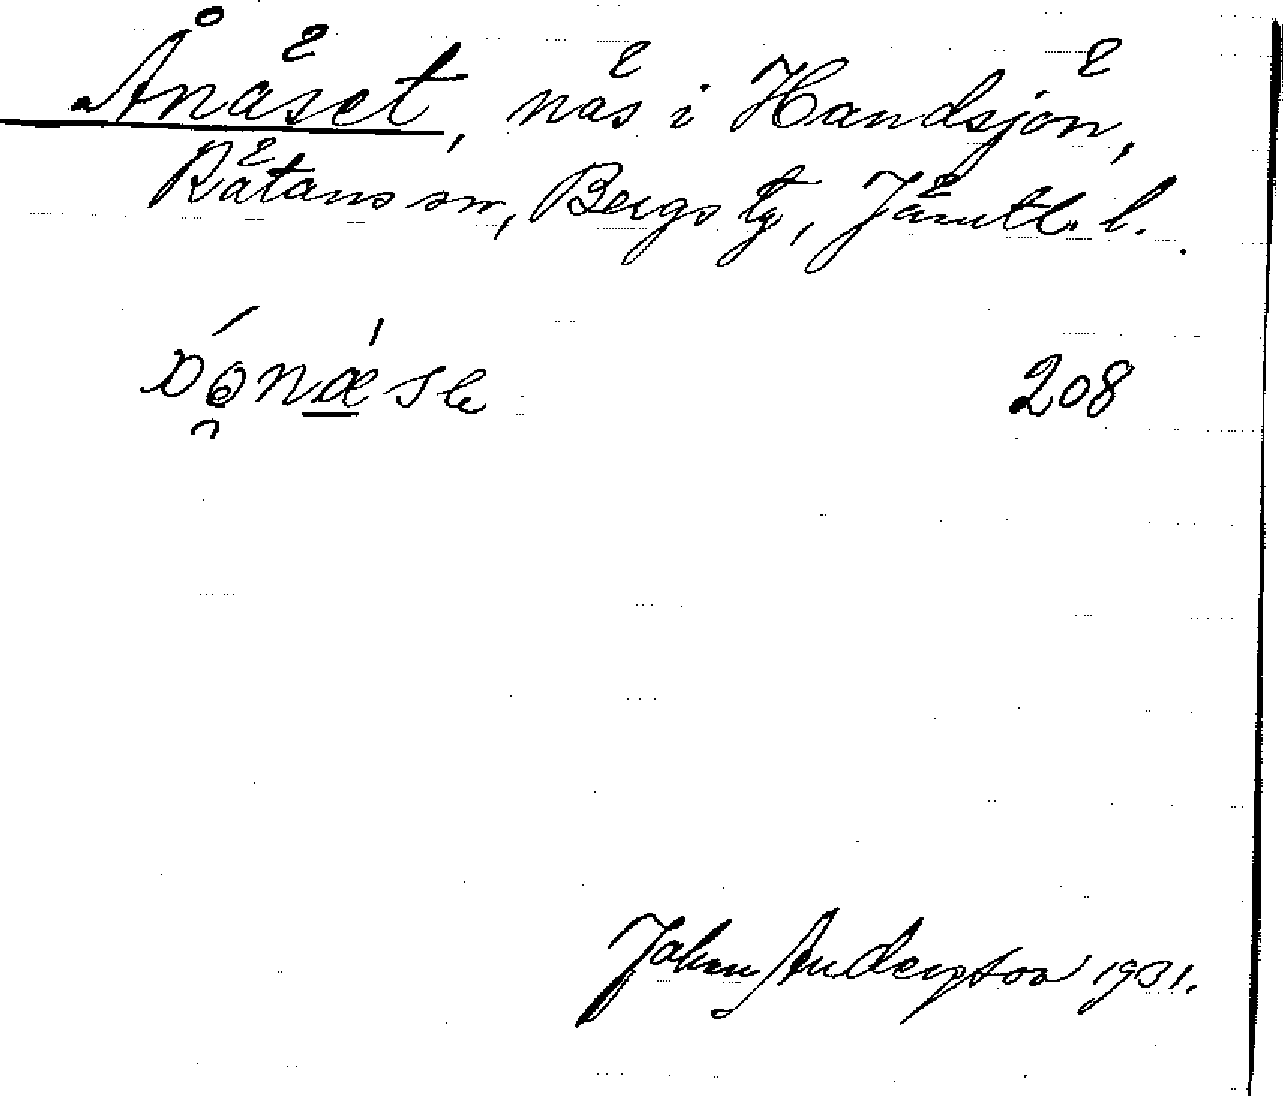 Ånäset, näs i Handsjön,
Rätans sn, Bergs tg, Jämtl. l.
208
John Anderson 1931.